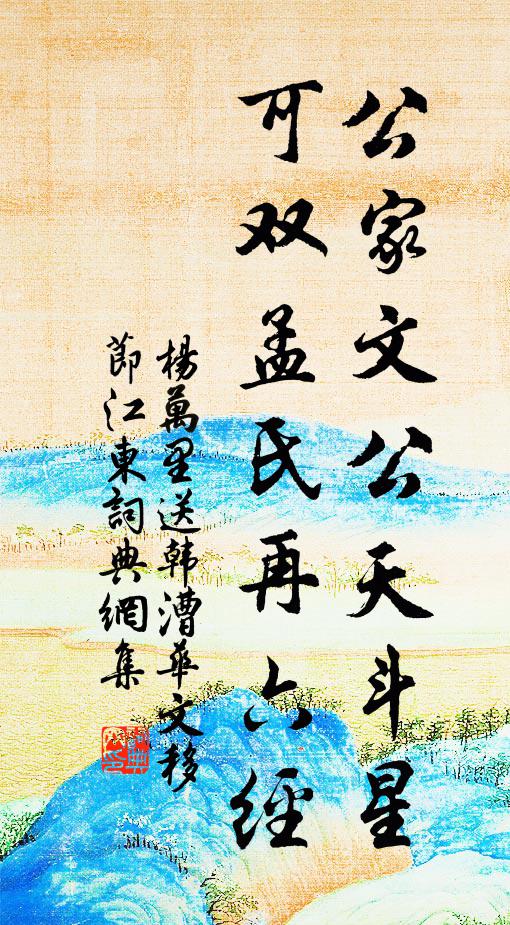 公家文公天斗星
可双孟氏再六經
楊萬里送韩漕華文移
節江東詞典網集